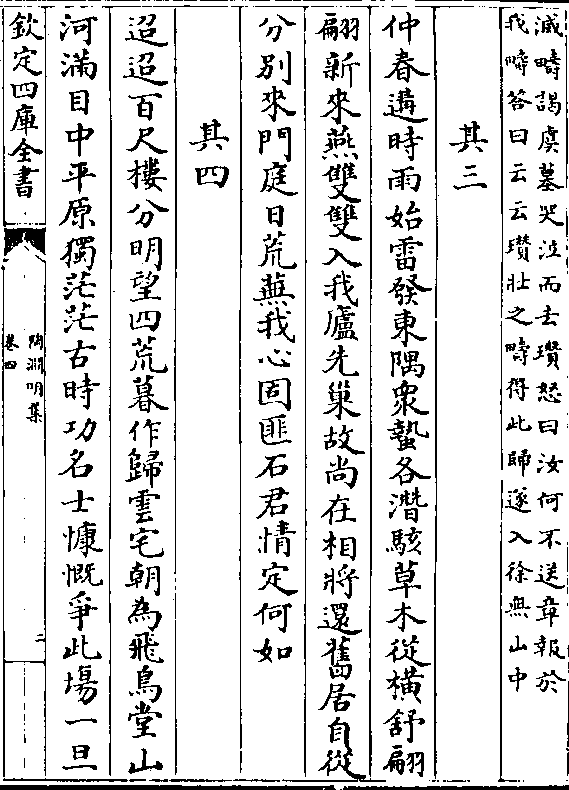 滅疇謁虞墓哭泣而去瓚怒曰汝何不送章報於
我疇答曰云云瓚壯之疇得此歸遂入徐無山中
其三
仲春遘時雨始雷發東隅衆蟄各潛駭草木從橫舒翩
翩新來燕雙雙入我廬先巢故尚在相將還舊居自從
分別來門庭日荒蕪我心固匪石君情定何如
其四
迢迢百尺樓分明望四荒暮作歸雲宅朝為飛鳥堂山
河滿目中平原獨茫茫古時功名士慷慨爭此場一旦
欽定四庫全書
陶淵明集
卷四
二